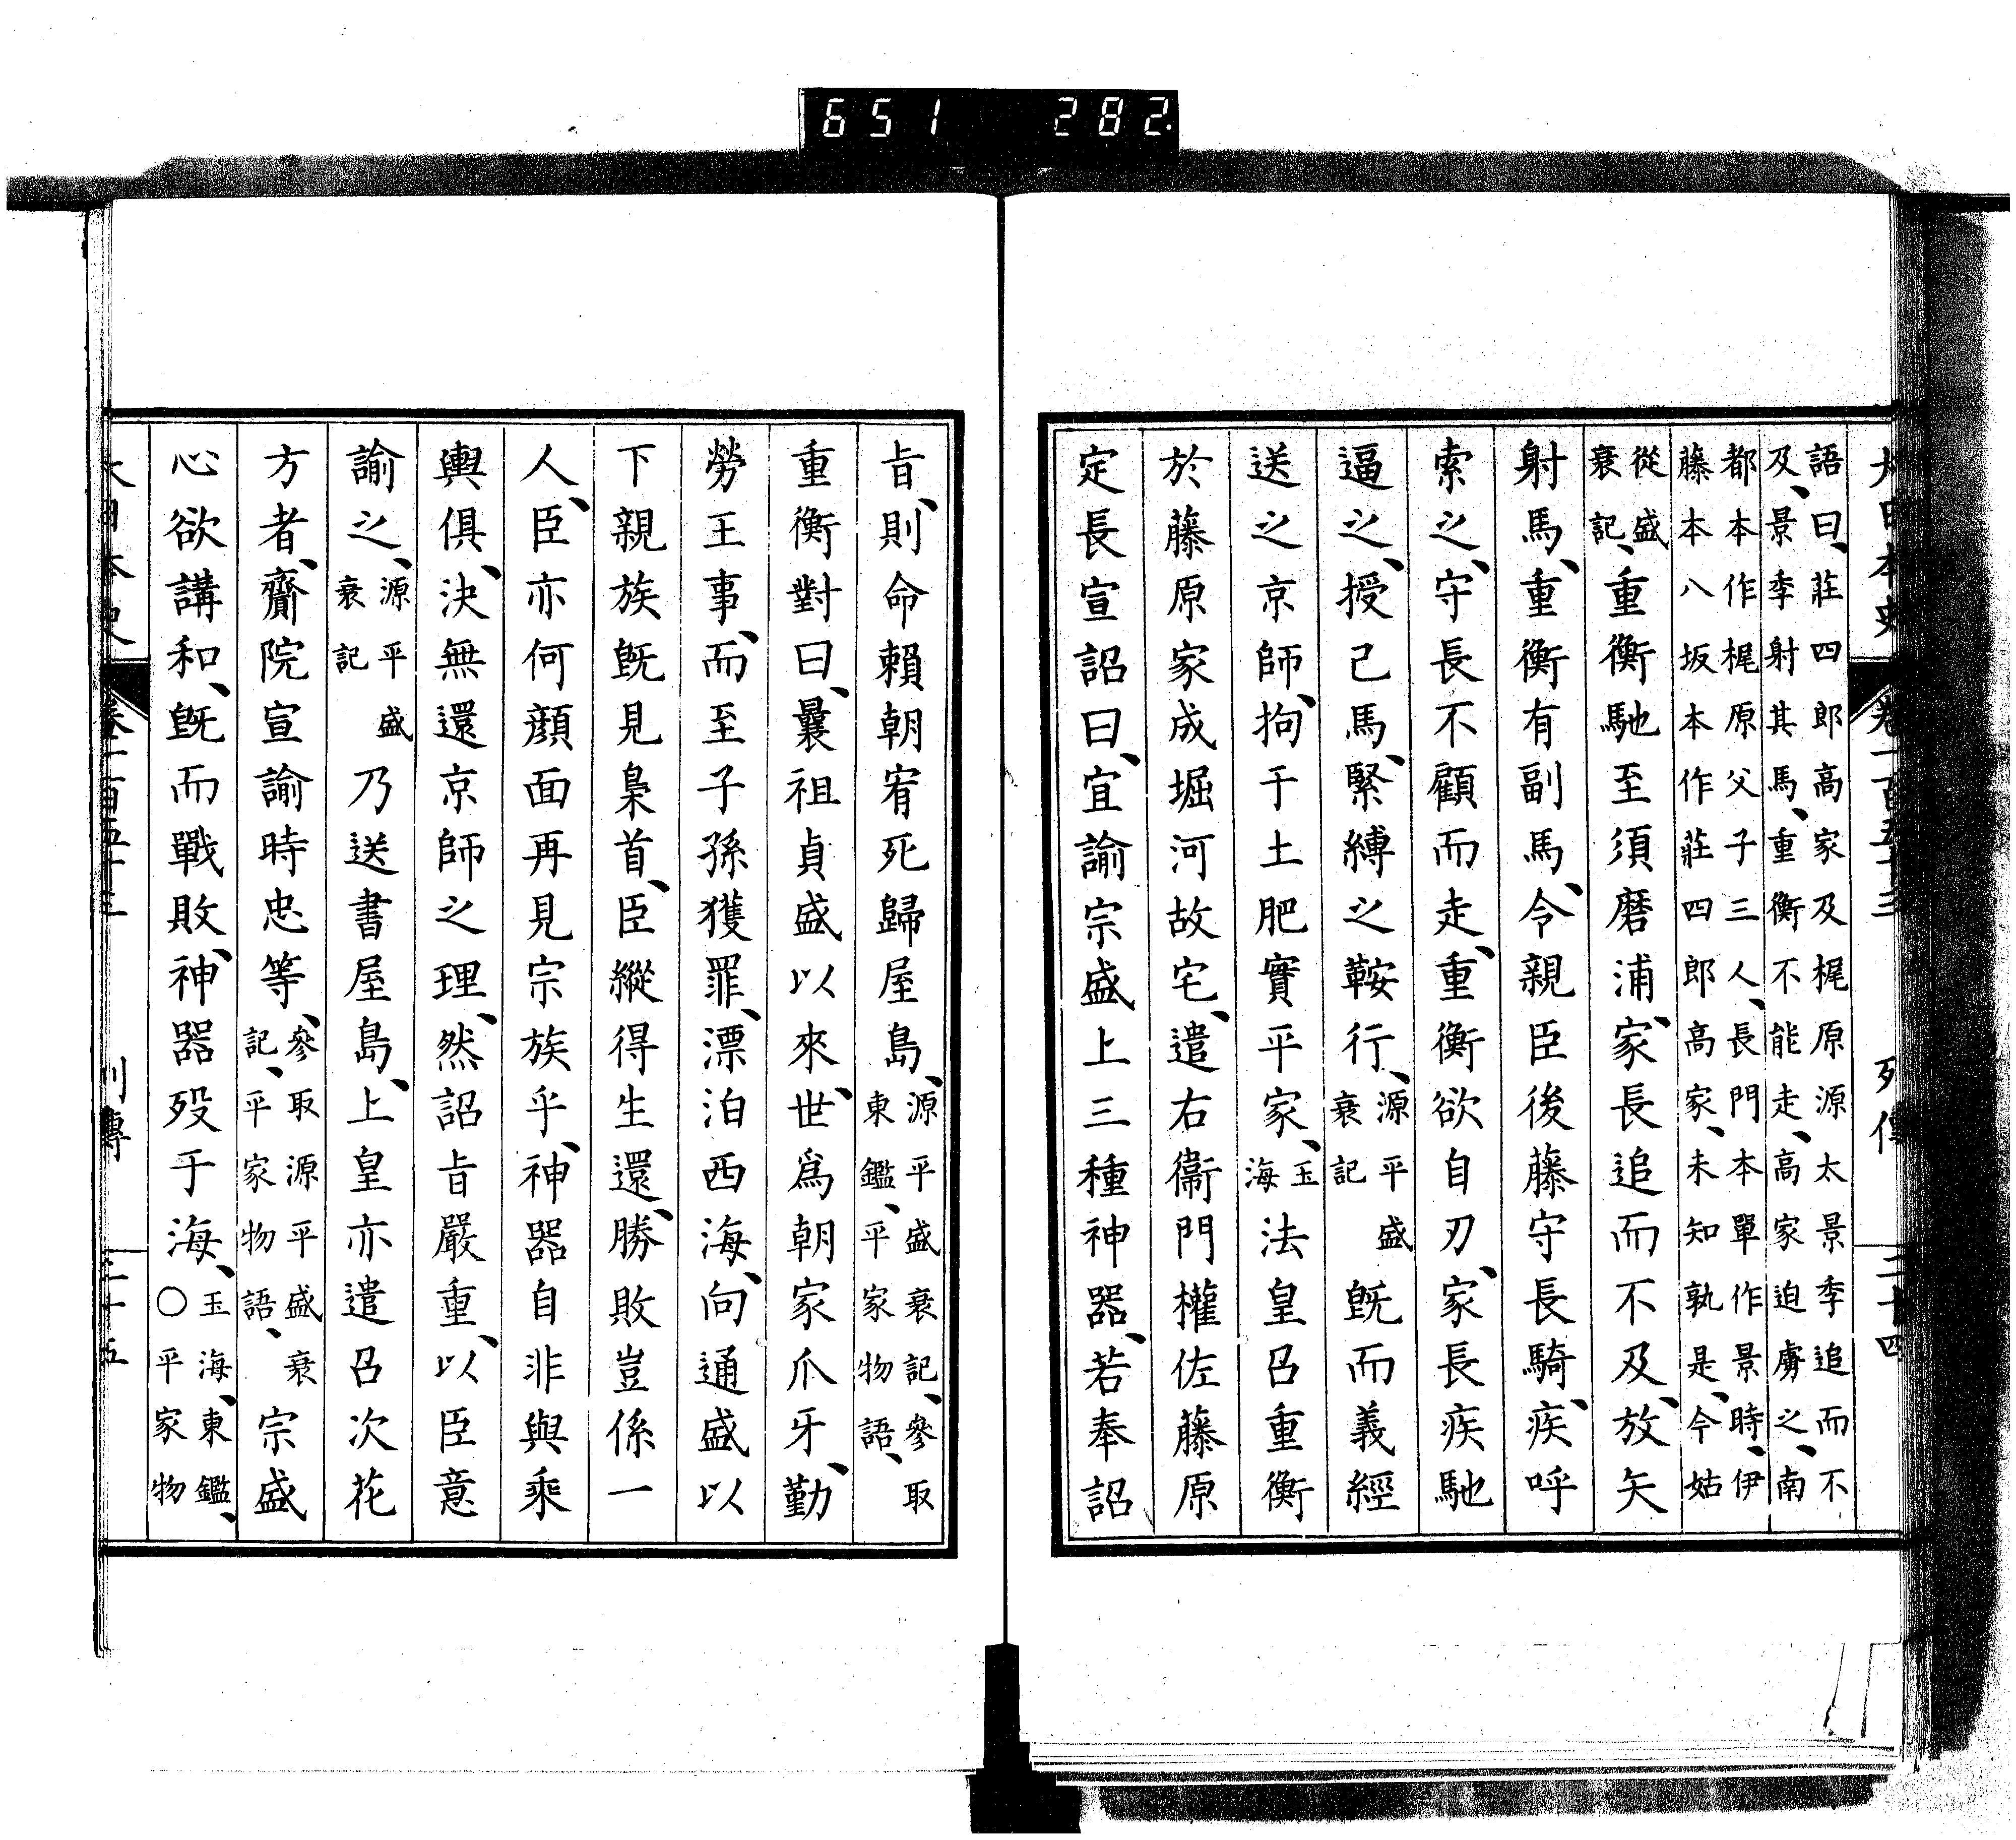 651 282.
大日本史 卷一百五十三 列傳 二十四
語曰、莊四郎高家及梶原源太景季追而不
及、景季射其馬、重衡不能走、高家迫虜之、南
都本作梶原父子三人、長門本單作景時、伊
藤本八坂本作莊四郎高家、未知孰是、今姑
從盛
衰記、重衡馳至須磨浦、家長追而不及、放矢
射馬、重衡有副馬、令親臣後藤守長騎、疾呼
索之、守長不顧而走、重衡欲自刃、家長疾馳
逼之、授己馬、緊縛之鞍行、源平盛衰記既而義經
送之京師、拘于土肥實平家、玉海法皇召重衡
於藤原家成堀河故宅、遣右衞門權佐藤原
定長宣詔曰、宜諭宗盛上三種神器、若奉詔
旨、則命賴朝宥死歸屋島、源平盛衰記、參取東鑑、平家物語、
重衡對曰、曩祖貞盛以來、世爲朝家爪牙、勤
勞王事、而至子孫獲罪、漂泊西海、向通盛以
下親族既見梟首、臣縱得生還、勝敗豈係一
人、臣亦何顏面再見宗族乎、神器自非與乘
輿俱、決無還京師之理、然詔旨嚴重、以臣意
諭之、源平盛衰記乃送書屋島、上皇亦遣召次花
方者、齎院宣諭時忠等、參取源平盛衰記、平家物語、宗盛
心欲講和、既而戰敗、神器歿于海、玉海、東鑑、○平家物
大日本史 卷一百五十三 列傳 二十五